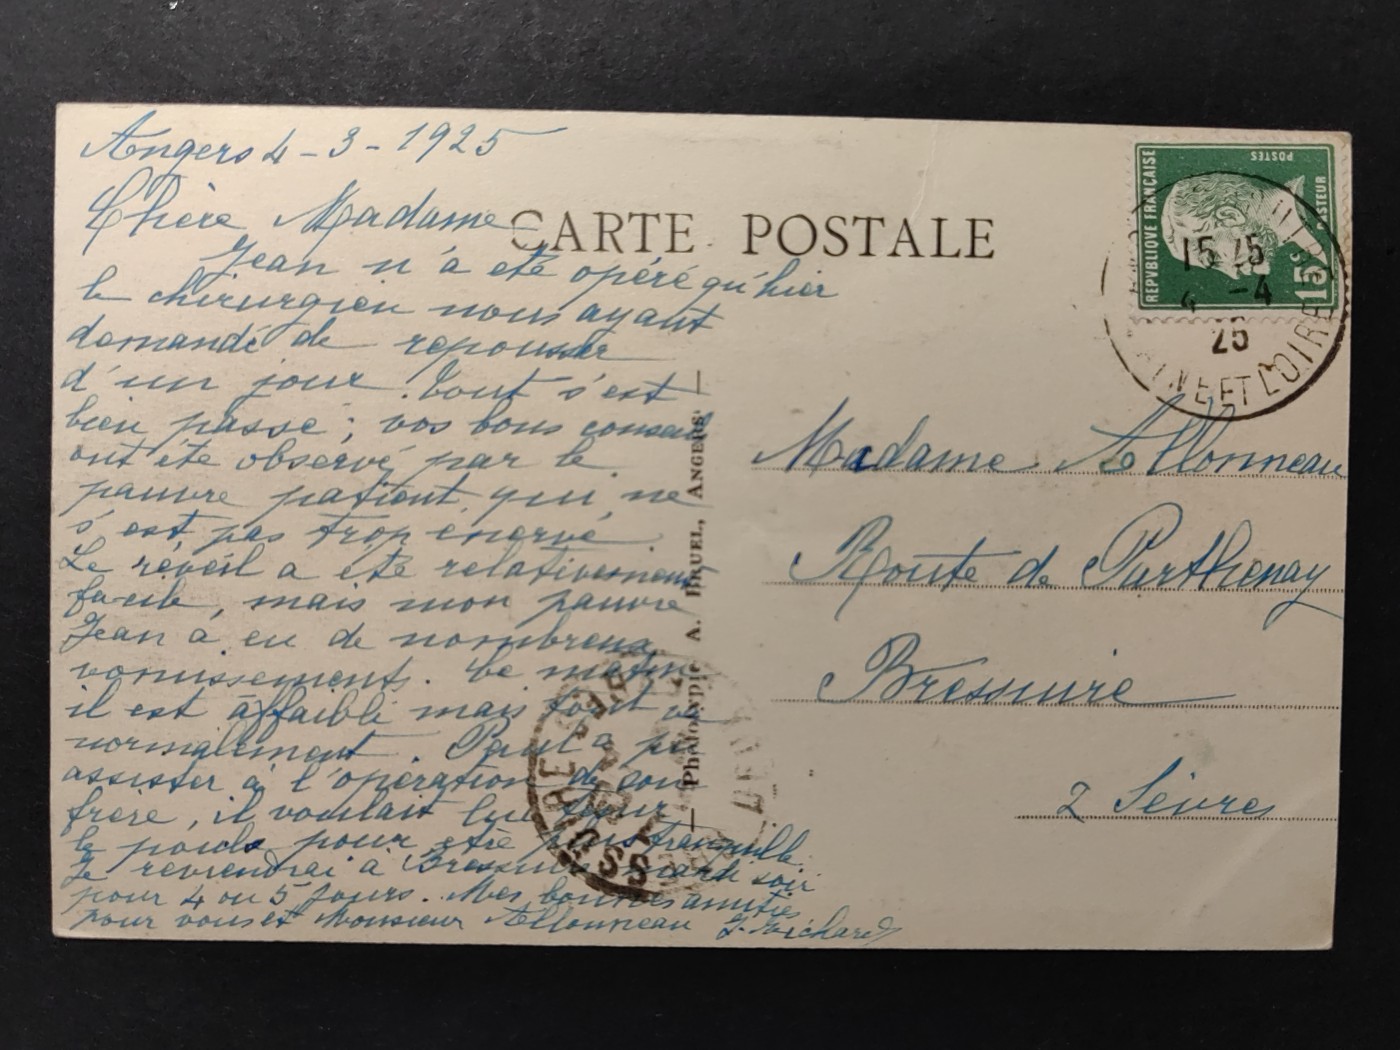 Angers 4-3-1925
Chère Madame
CARTE POSTALE
Jean n'a été opéré qu'hier
le chirurgien nous ayant
demandé de repousser
d'un jour. Tout s'est
bien passé; vos bons conseils
ont été observé par le
pauvre patient, qui ne
s'est pas trop énervé.
Le réveil a été relativement
facile, mais mon pauvre
Jean à eu de nombreux
vomissements. Ce matin
il est affaibli mais tout va
normalement. Paul a pu
assister à l'opération de son
frère, il voulait lui tenir
le pouls pour être plus tranquille.
Je reviendrai à Bressuire mardi soir
pour 4 ou 5 jours. Mes bonnes amitiés
pour vous et Monsieur Allonneau J. Richard
Phototypie A. BRUEL, ANGERS
REPVBLIQVE FRANÇAISE
POSTES
PASTEUR
15c
15 45
4 -4
25
ET LOIRE
Madame Allonneau
Route de Parthenay
Bressuire
2 Sèvres